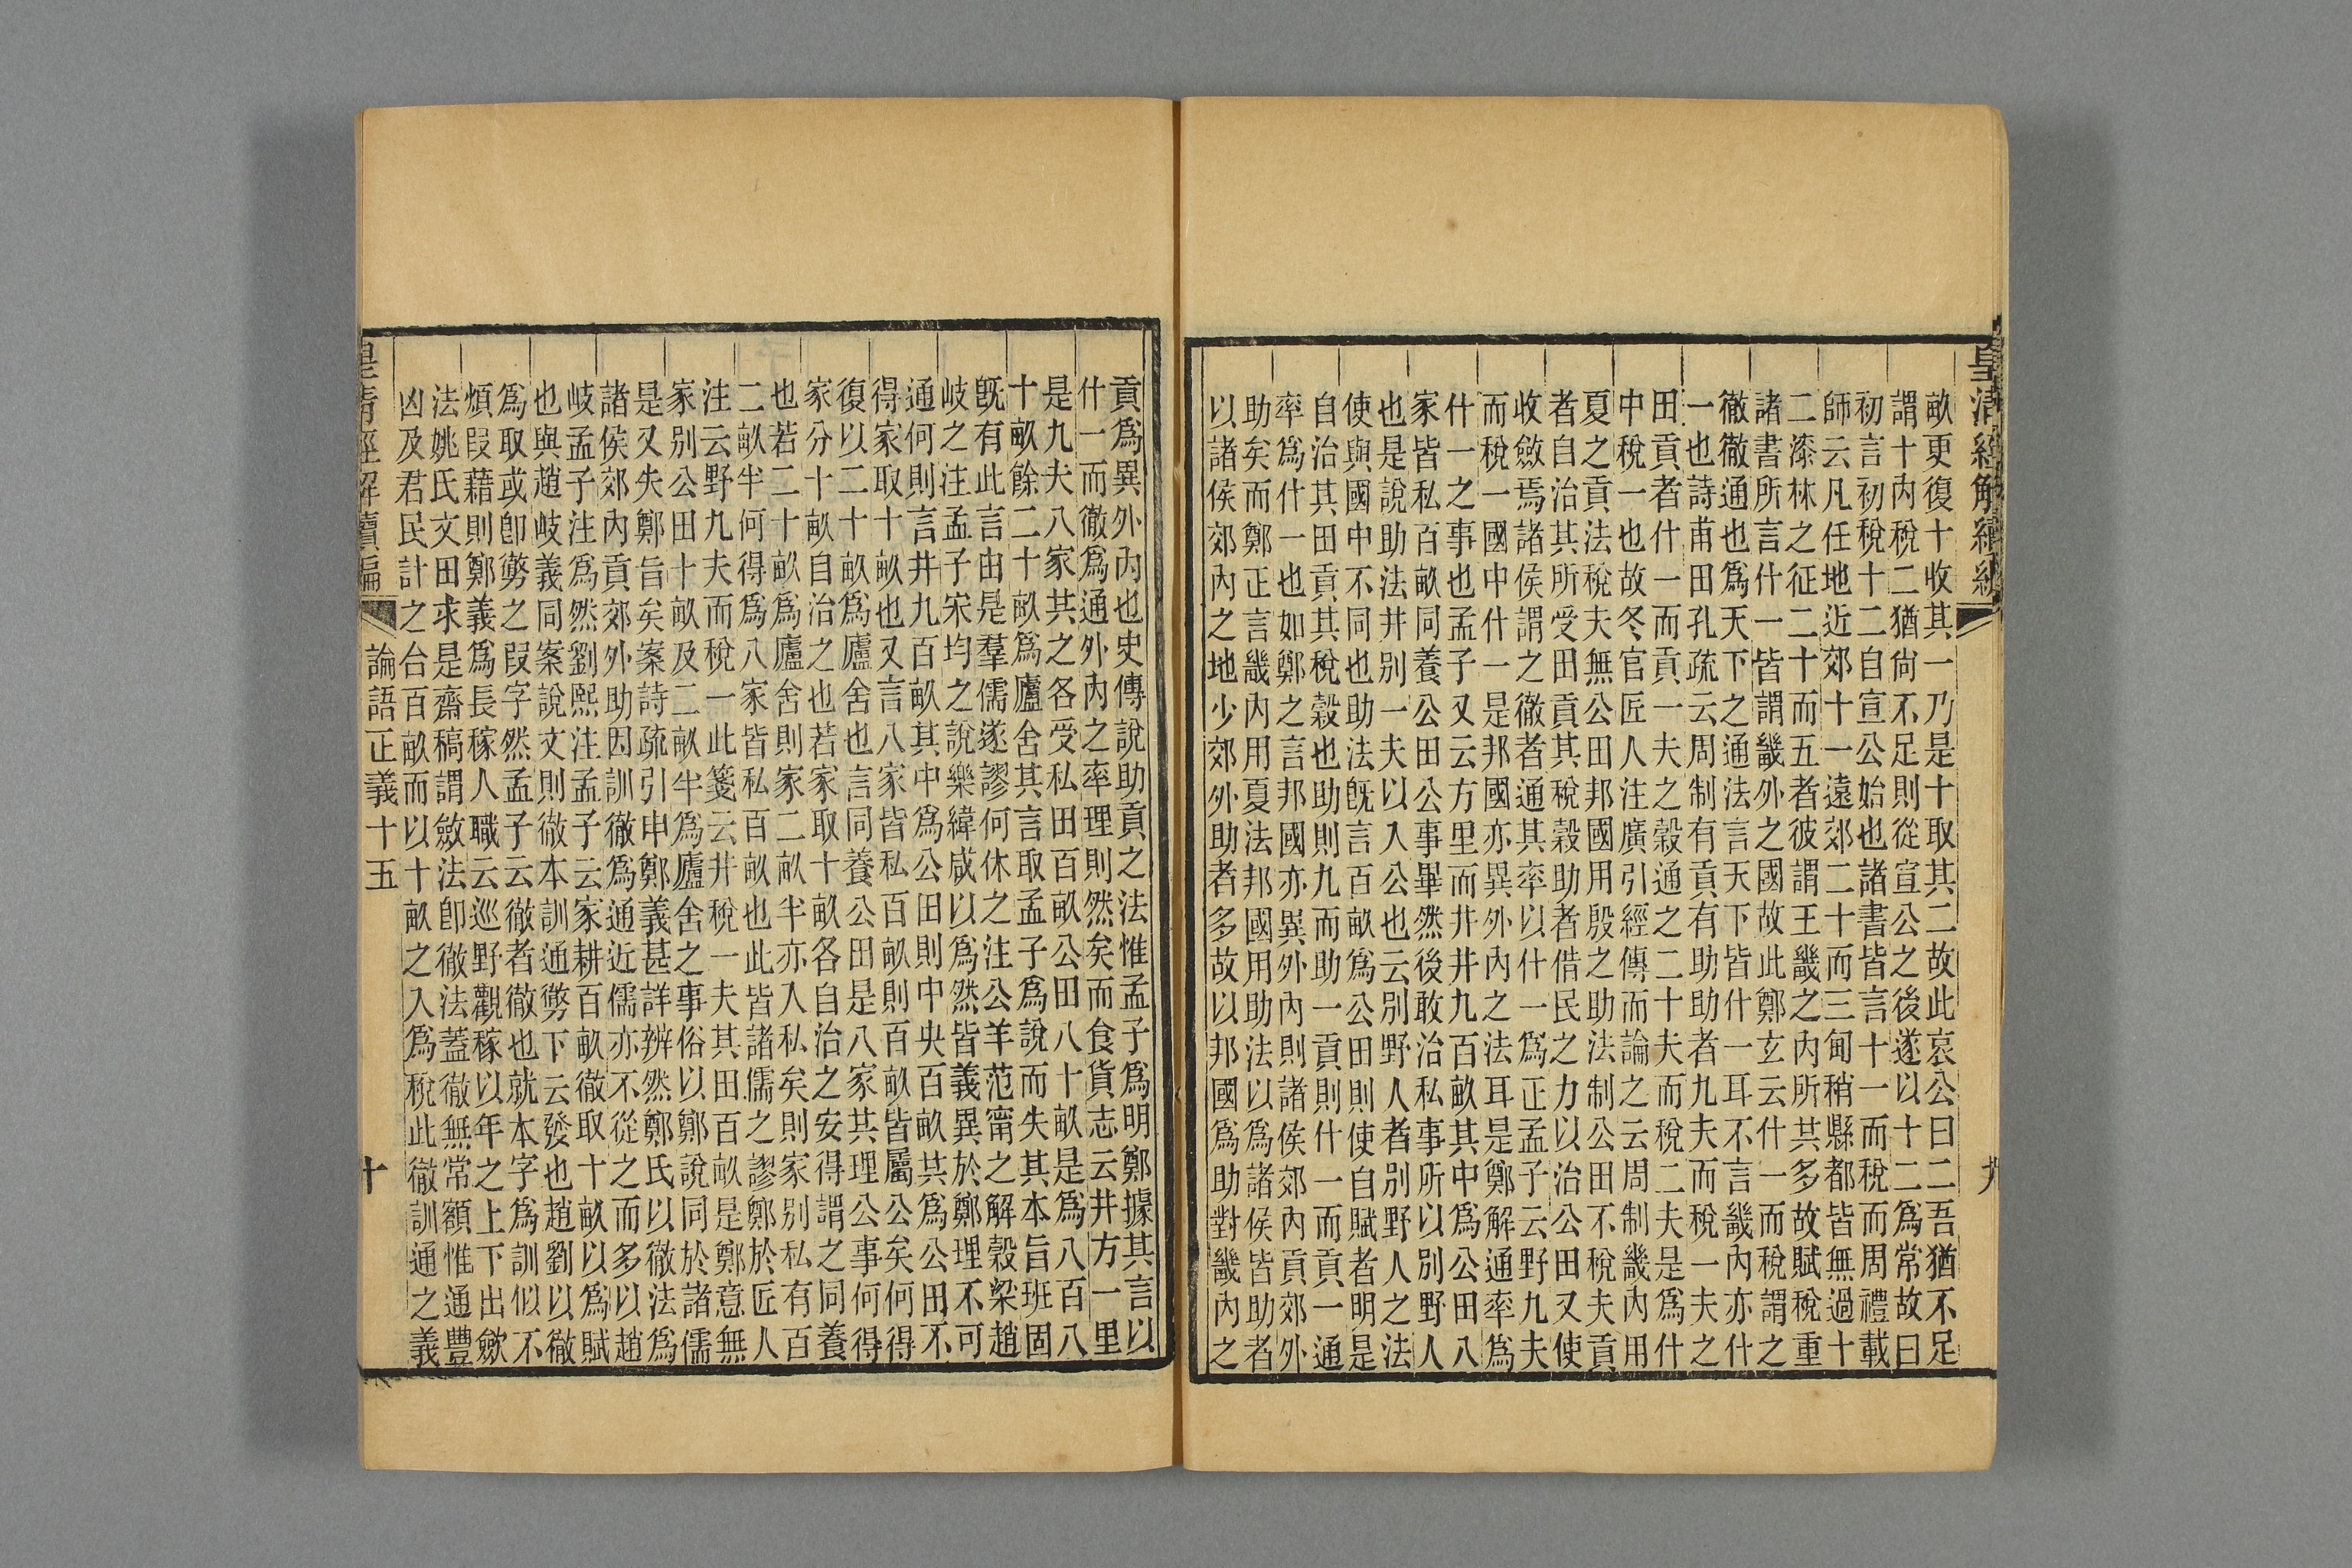 皇清經解續編
畝更復十收其一乃是十取其二故此哀公曰二吾猶不足
謂十內稅二猶尙不足則從宣公之後遂以十二爲常故曰
初言初稅十二自宣公始也諸書皆言十一而稅而周禮載
師云凡任地近郊十一遠郊二十而三甸稍縣都皆無過十
二漆林之征二十而五者彼謂王畿之內所其多故賦稅重
諸書所言什一皆謂畿外之國故此鄭玄云什一而稅謂之
徹徹通也爲天下之通法言天下皆什一耳不言畿內亦什
一也詩甫田孔疏云周制有貢有助助者九夫而稅一夫之
田貢者什一而貢一夫之穀通之二十夫而稅二夫是爲什
中稅一也故冬官匠人注廣引經傳而論之云周制畿內用
夏之貢法稅夫無公田邦國用殷之助法制公田不稅夫貢
者自治其所受田貢其稅穀助者借民之力以治公田又使
收斂焉諸侯謂之徹者通其率以什一爲正孟子云野九夫
而稅一國中什一是邦國亦異外內之法耳是鄭解通率爲
什一之事也孟子又云方里而井井九百畝其中爲公田八
家皆私百畝同養公田公事畢然後敢治私事所以別野人
也是說助法井別一夫以入公也云別野人者別野人之法
使與國中不同也助法旣言百畝爲公田則使自賦者明是
自治其田貢其稅穀也助則九而助一貢則什一而貢一通
率爲什一也如鄭之言邦國亦異外內則諸侯郊內貢郊外
助矣而鄭正言畿內用夏法邦國用助法以爲諸侯皆助者
以諸侯郊內之地少郊外助者多故以邦國爲助對畿內之
貢爲異外內也史傳說助貢之法惟孟子爲明鄭據其言以
什一而徹爲通外內之率理則然矣而食貨志云井方一里
是九夫八家共之各受私田百畝公田八十畝是爲八百八
十畝餘二十畝爲廬舍其言取孟子爲說而失其本旨班固
旣有此言由是羣儒遂謬何休之注公羊范甯之解穀梁趙
岐之注孟子宋均之說樂緯咸以爲然皆義異於鄭理不可
通何則言井九百畝其中爲公田則中央百畝共爲公田不
得家取十畝也又言八家皆私百畝則百畝皆屬公矣何得
復以二十畝爲廬舍也言同養公田是八家共理公事何得
家分十畝自治之也若家取十畝各自治之安得謂之同養
也若二十畝爲廬舍則家二畝半亦入私矣則家別私有百
二畝半何得爲八家皆私百畝也此皆諸儒之謬鄭於匠人
注云野九夫而稅一此箋云井稅一夫其田百畝是鄭意無
家別公田十畝及二畝半爲廬舍之事俗以鄭說同於諸儒
是又失鄭旨矣案詩疏引申鄭義甚詳辨然鄭氏以徹法爲
諸侯郊內貢郊外助因訓徹爲通近儒亦不從之而多以趙
岐孟子注爲然劉熙注孟子云家耕百畝徹取十畝以爲賦
也與趙岐義同案說文則徹本訓通勶下云發也趙劉以徹
爲取或卽勶之叚字然孟子云徹者徹也就本字爲訓似不
煩叚藉則鄭義爲長稼人職云巡野觀稼以年之上下出斂
法姚氏文田求是齋稿謂斂法卽徹法蓋徹無常額惟通豐
凶及君民計之合百畝而以十畝之入爲稅此徹訓通之義
皇清經解續編
論語正義十五
十